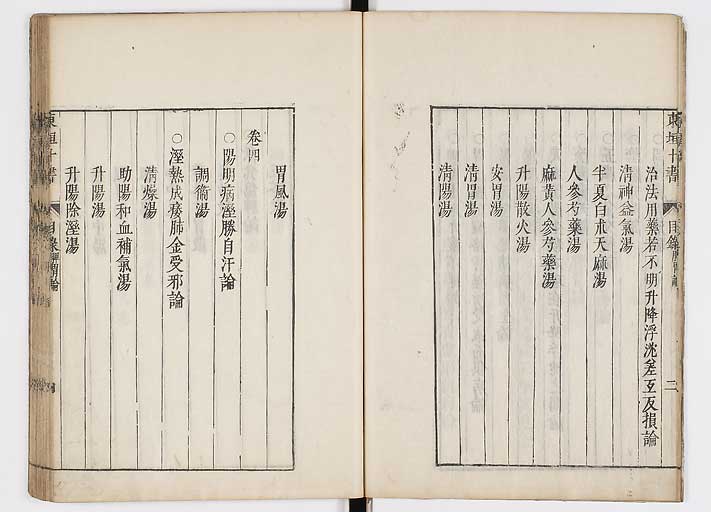 東垣十書
目錄
二
○治法用藥若不明升降浮沈差互反損論
清神益氣湯
半夏白朮天麻湯
人參芍藥湯
麻黃人參芍藥湯
升陽散火湯
安胃湯
清胃湯
清陽湯
胃風湯
卷四
○陽明病溼勝自汗論
調衛湯
○溼熱成痿肺金受邪論
清燥湯
助陽和血補氣湯
升陽湯
升陽除溼湯
東垣十書
目錄
脾胃論